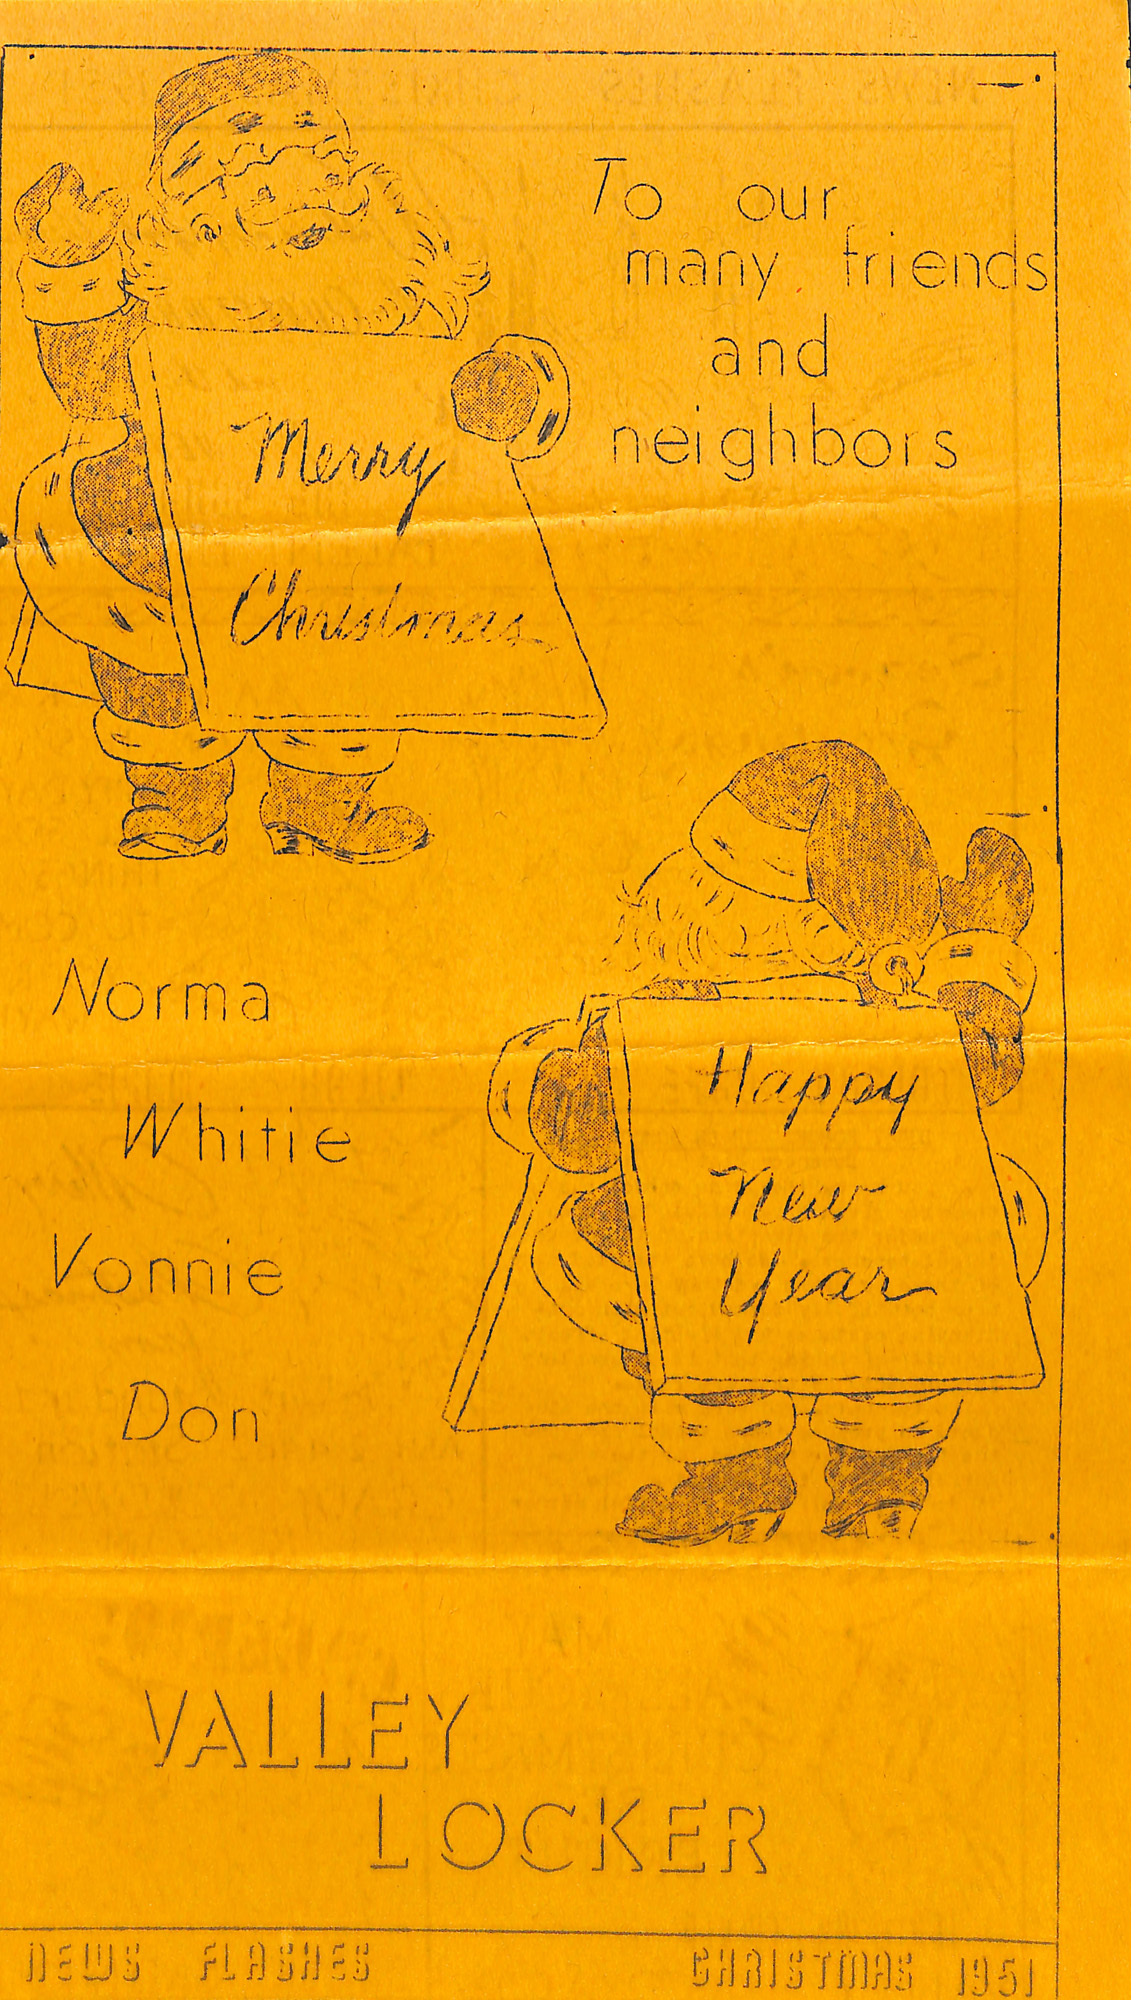 To our
many friends
and
neighbors
Merry
Christmas
Norma
Whitie
Vonnie
Don
Happy
New
Year
VALLEY
LOCKER
NEWS FLASHES CHRISTMAS 1951